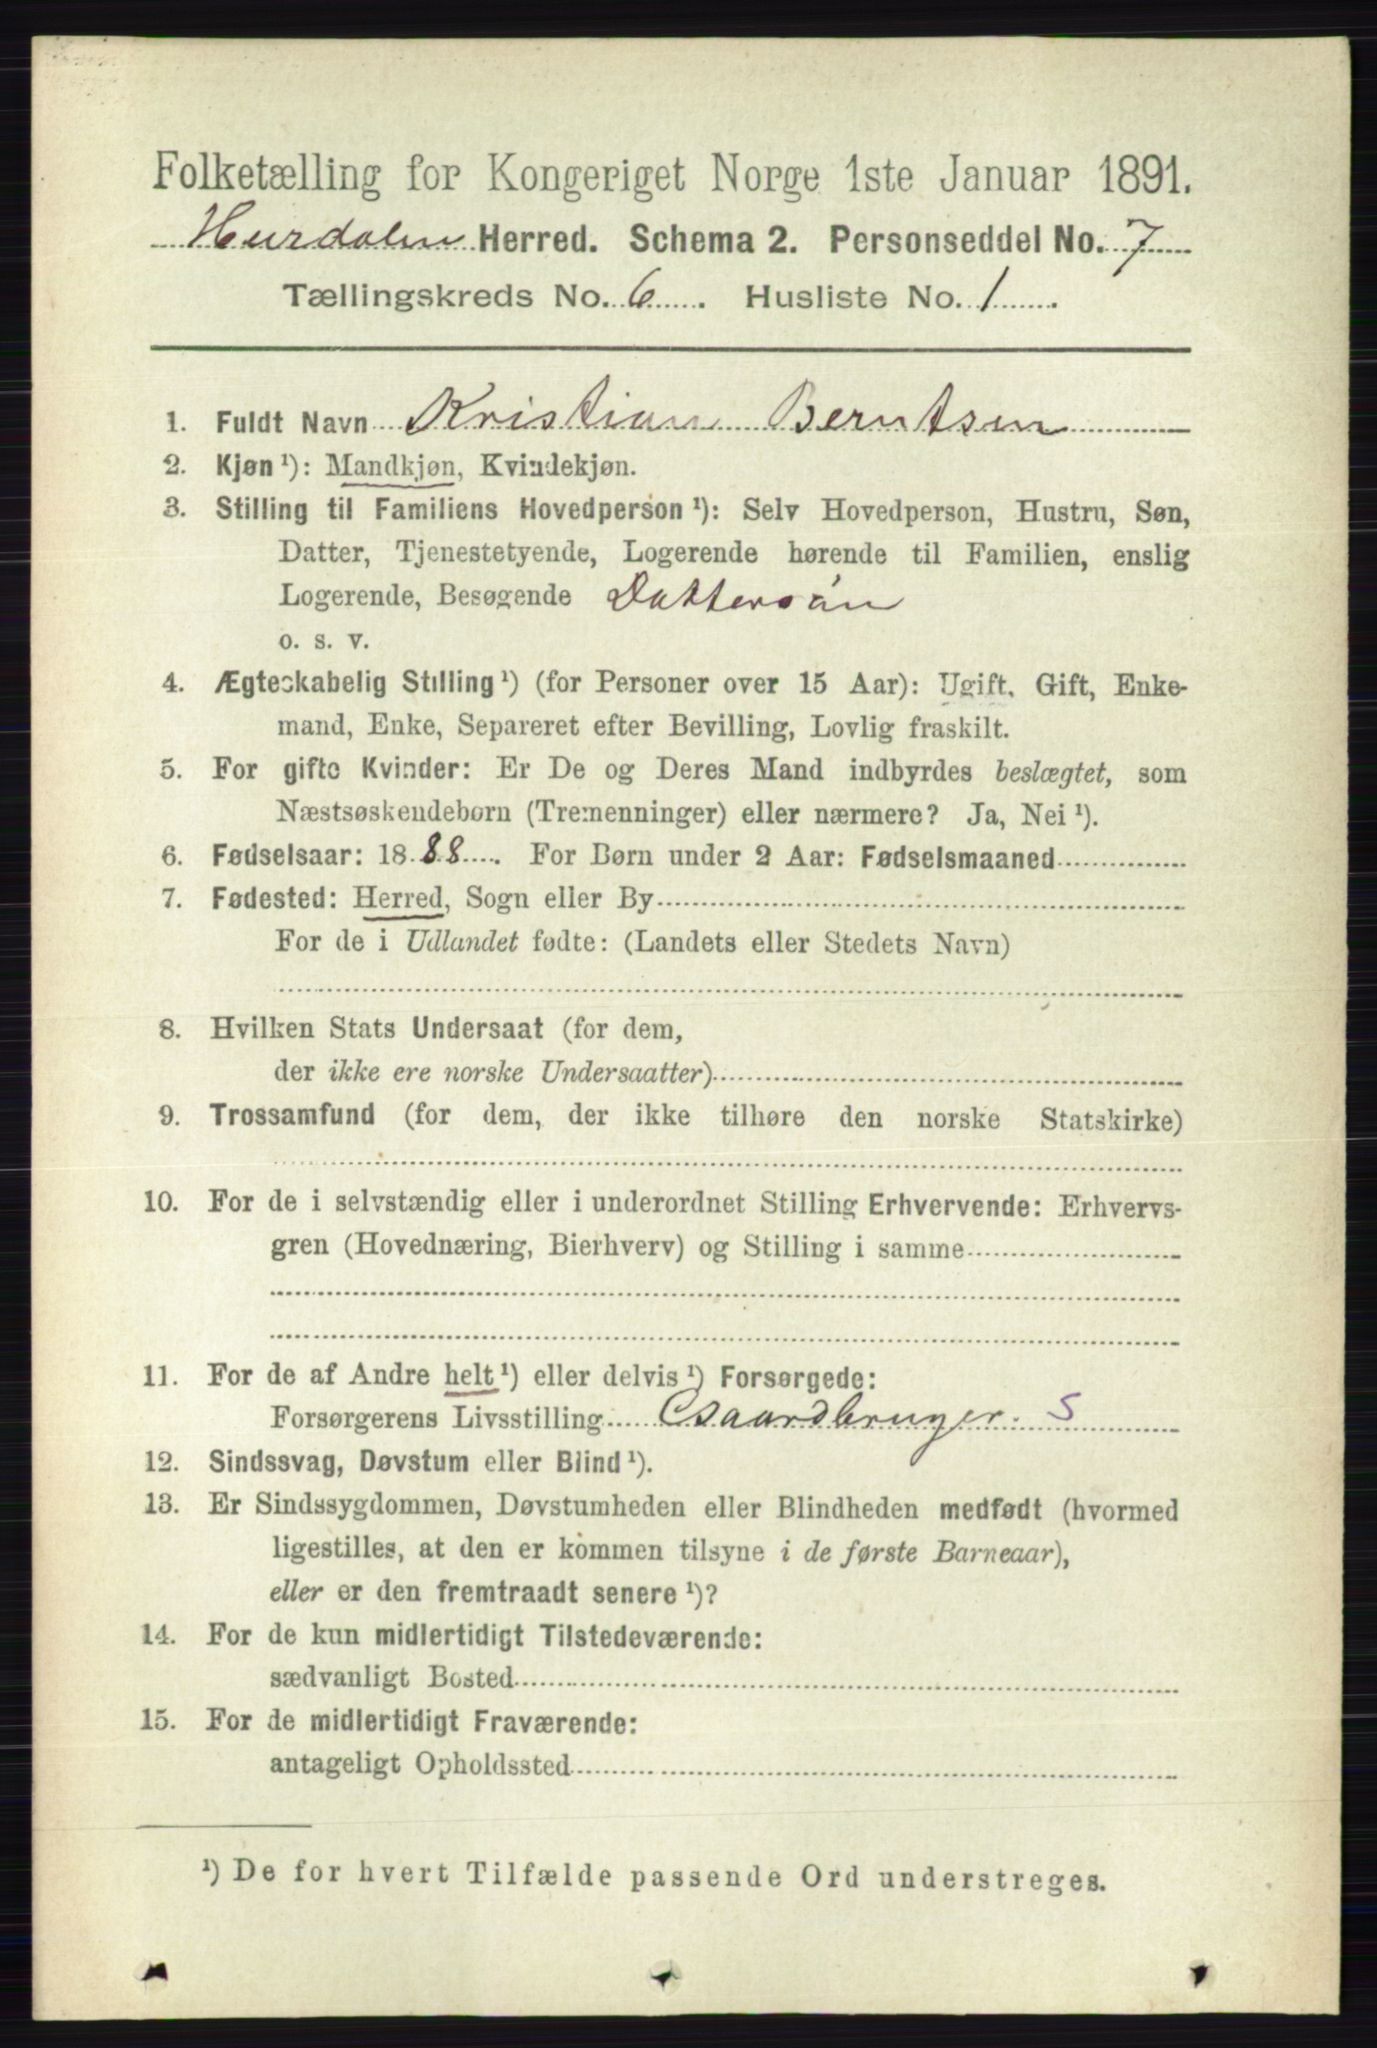 Folketælling for Kongeriget Norge 1ste Januar 1891.
Hurdalen Herred. Schema 2. Personseddel No. 7
Tællingskreds No. 6. Husliste No. 1.
1. Fuldt Navn Kristian Berntsen
2. Kjøn ¹): Mandkjøn, Kvindekjøn.
3. Stilling til Familiens Hovedperson ¹): Selv Hovedperson, Hustru, Søn,
Datter, Tjenestetyende, Logerende hørende til Familien, enslig
Logerende, Besøgende Dattersøn
o. s. v.
4. Ægteskabelig Stilling ¹) (for Personer over 15 Aar): Ugift, Gift, Enke-
mand, Enke, Separeret efter Bevilling, Lovlig fraskilt.
5. For gifte Kvinder: Er De og Deres Mand indbyrdes beslægtet, som
Næstsøskendebørn (Tremenninger) eller nærmere? Ja, Nei ¹).
6. Fødselsaar: 1888. For Børn under 2 Aar: Fødselsmaaned
7. Fødested: Herred, Sogn eller By
For de i Udlandet fødte: (Landets eller Stedets Navn)
8. Hvilken Stats Undersaat (for dem,
der ikke ere norske Undersaatter)
9. Trossamfund (for dem, der ikke tilhøre den norske Statskirke)
10. For de i selvstændig eller i underordnet Stilling Erhvervende: Erhvervs-
gren (Hovednæring, Bierhverv) og Stilling i samme
11. For de af Andre helt ¹) eller delvis ¹) Forsørgede:
Forsørgerens Livsstilling Gaardbruger. S
12. Sindssvag, Døvstum eller Blind ¹).
13. Er Sindssygdommen, Døvstumheden eller Blindheden medfødt (hvormed
ligestilles, at den er kommen tilsyne i de første Barneaar),
eller er den fremtraadt senere ¹)?
14. For de kun midlertidigt Tilstedeværende:
sædvanligt Bosted
15. For de midlertidigt Fraværende:
antageligt Opholdssted
¹) De for hvert Tilfælde passende Ord understreges.